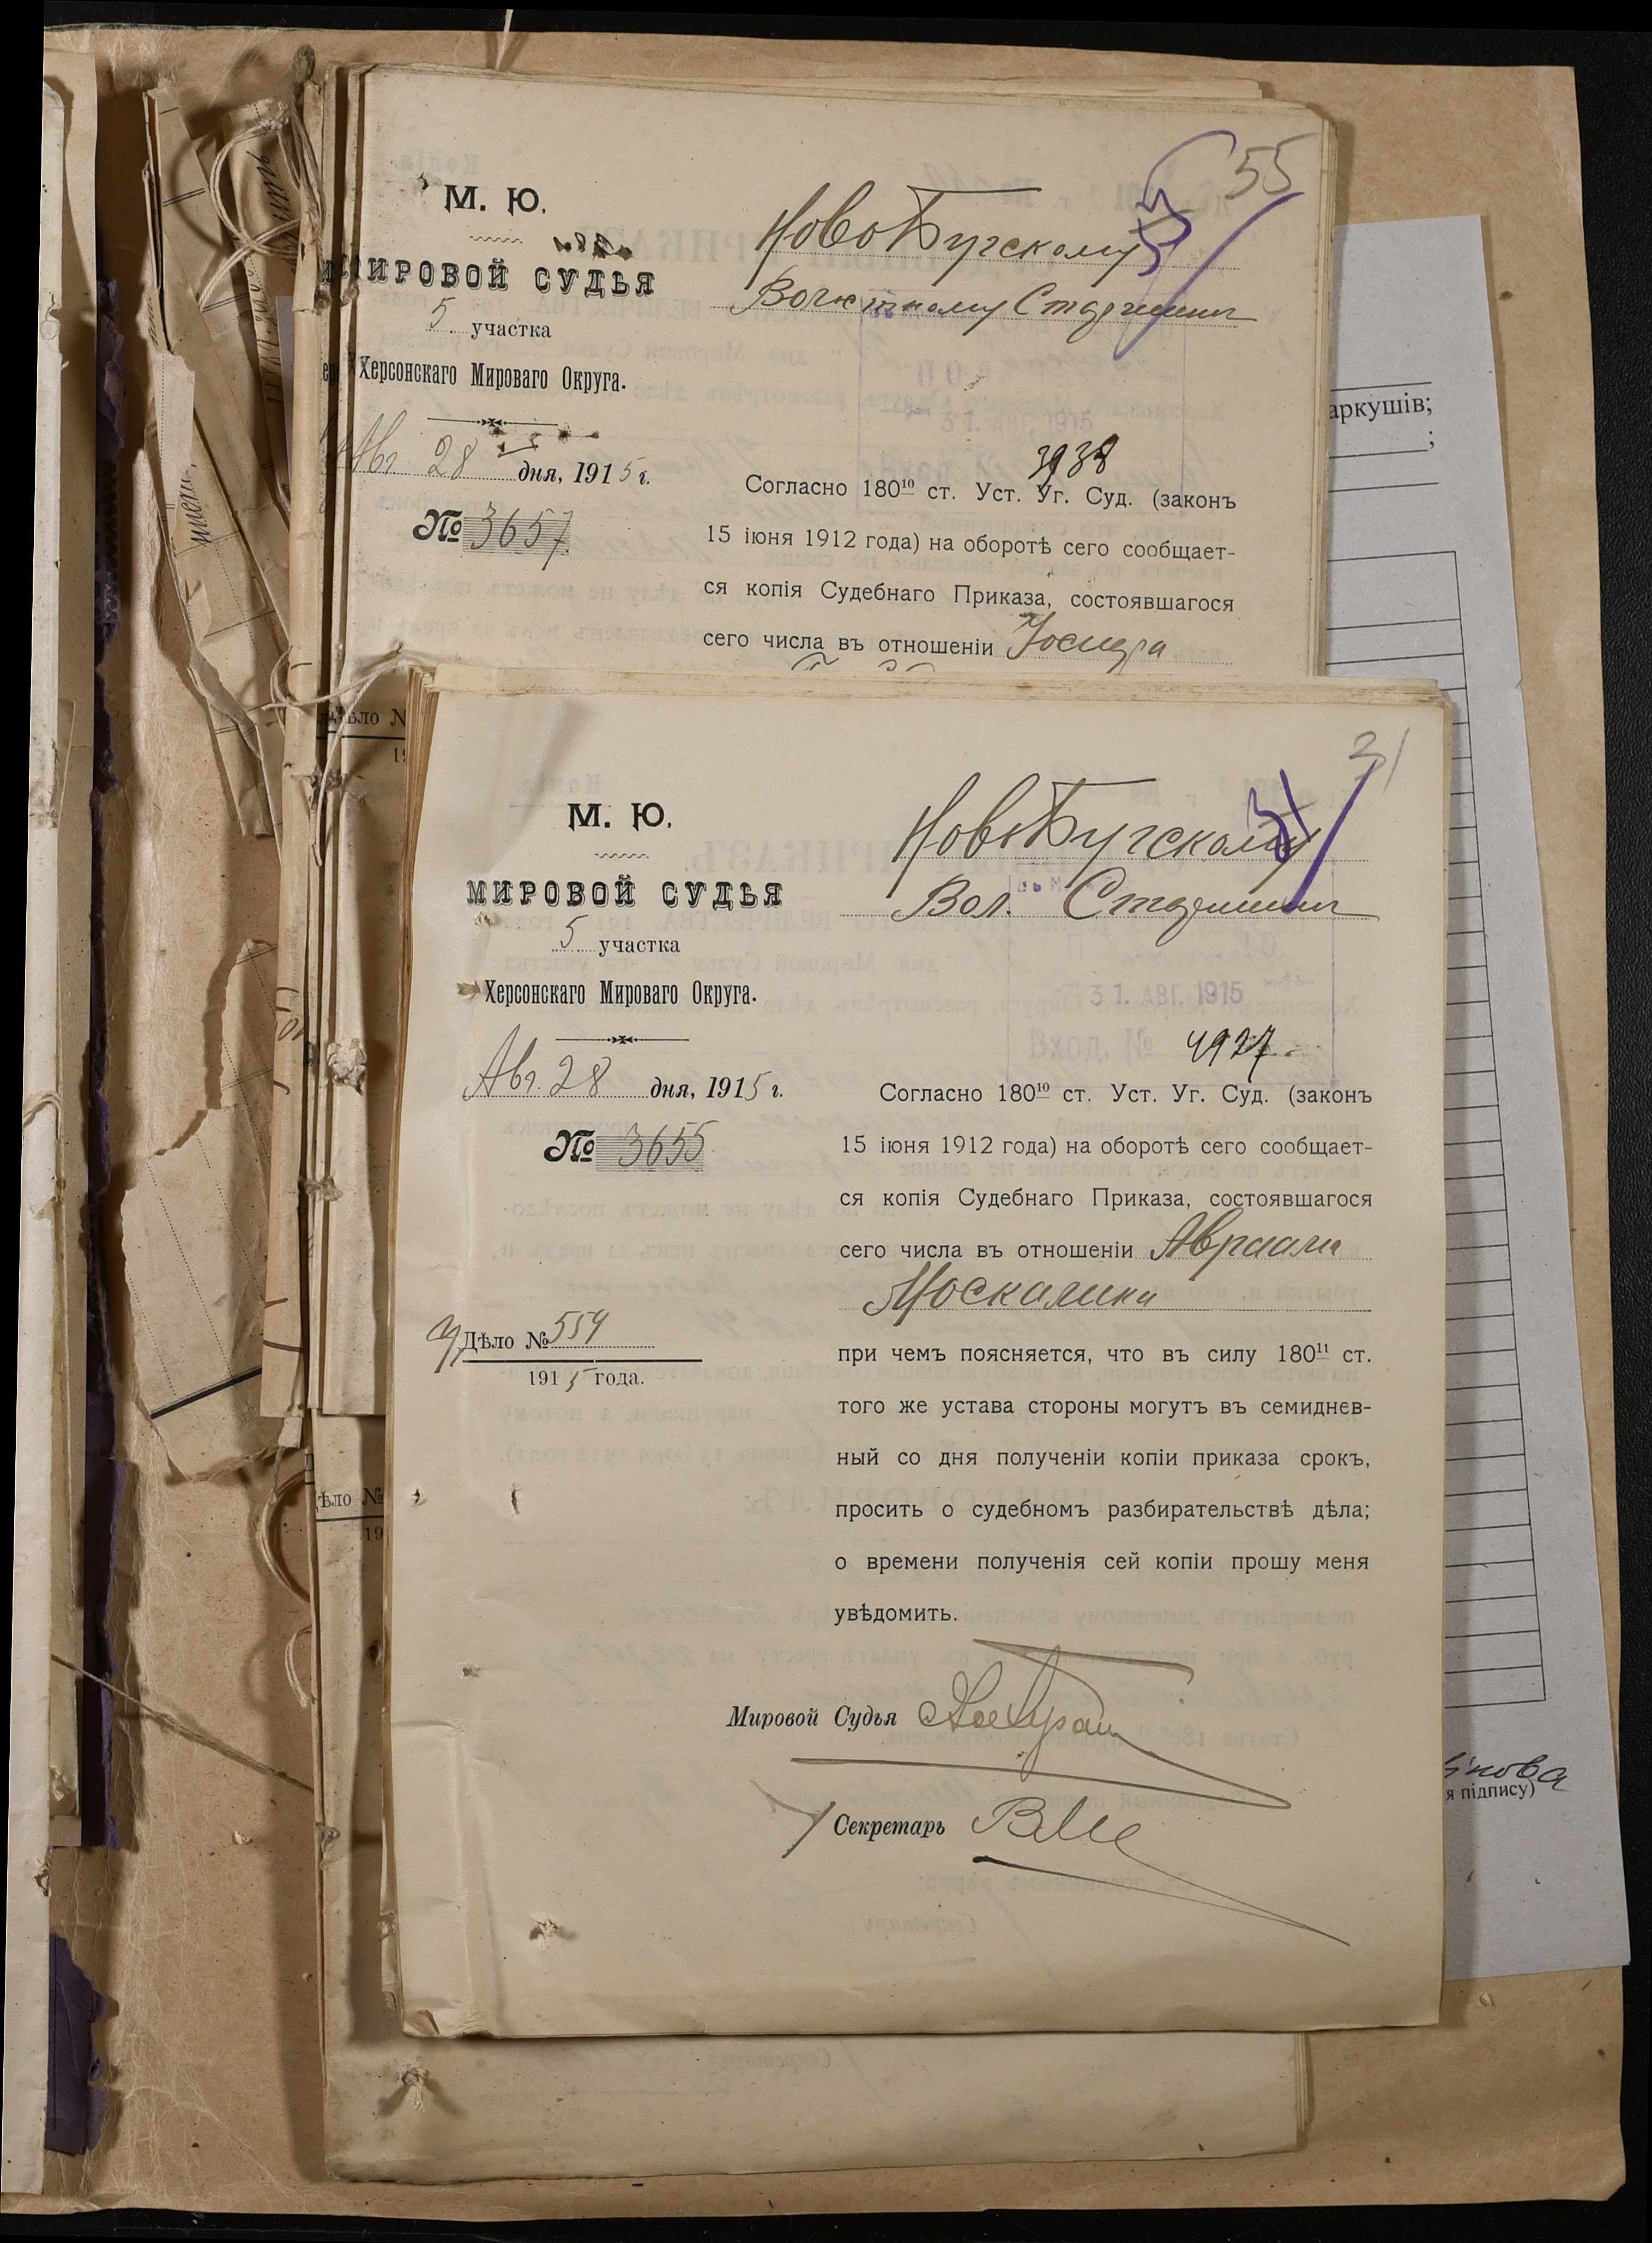 55
М. Ю.
МИРОВОЙ СУДЬЯ
5 участка
Херсонскаго Мироваго Округа.
Авг 28 дня, 1915 г.
№ 3657
НовоБугскому
Волостному Старшине
31. АВГ. 1915
3938
Согласно 180¹⁰ ст. Уст. Уг. Суд. (законъ
15 іюня 1912 года) на оборотѣ сего сообщает-
ся копія Судебнаго Приказа, состоявшагося
сего числа въ отношеніи Іосифа
аркушів;
;
Дѣло №
19
Дѣло №
19
31
М. Ю.
МИРОВОЙ СУДЬЯ
5 участка
Херсонскаго Мироваго Округа.
Авг. 28 дня, 1915 г.
№ 3655
Дѣло № 554
1915 года.
НовоБугскому
Вол. Старшине
31. АВГ. 1915
Вход. №
Согласно 180¹⁰ ст. Уст. Уг. Суд. (законъ
15 іюня 1912 года) на оборотѣ сего сообщает-
ся копія Судебнаго Приказа, состоявшагося
сего числа въ отношеніи Авраама
Москалика
при чемъ поясняется, что въ силу 180¹¹ ст.
того же устава стороны могутъ въ семиднев-
ный со дня полученіи копіи приказа срокъ,
просить о судебномъ разбирательствѣ дѣла;
о времени полученія сей копіи прошу меня
увѣдомить.
Мировой Судья
Секретарь
я підпису)